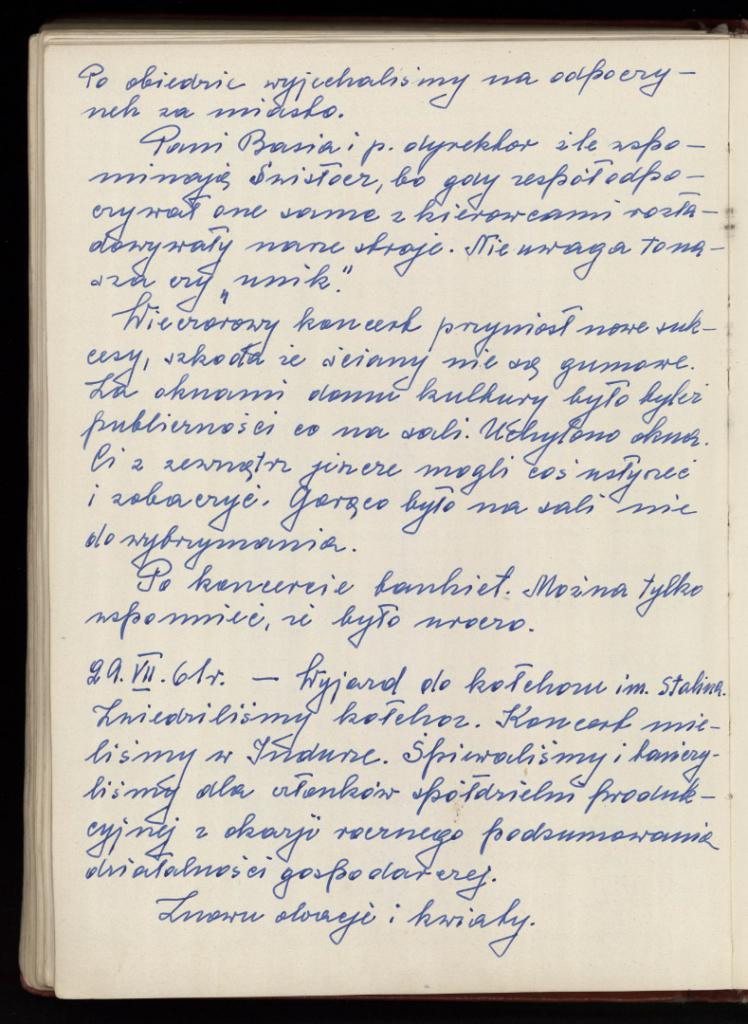 Po obiedzie wyjechaliśmy na odpoczy-
nek za miasto.
Pani Basia i p. dyrektor źle wspo-
minają Świsłocz, bo gdy zespół odpo-
czywał one same z kierowcami rozła-
dowywały nasze stroje. Nie uwaga to na-
sza czy „unik".
Wieczorowy koncert przyniósł nowe suk-
cesy, szkoda że ściany nie są gumowe.
Za oknami domu kultury było tyleż
publiczności co na sali. Uchylono okna.
Ci z zewnątrz jeszcze mogli coś usłyszeć
i zobaczyć. Gorąco było na sali nie
do wytrzymania.
Po koncercie bankiet. Można tylko
wspomnieć, że było uroczo.
29. VII. 61r. — Wyjazd do kołchozu im. Stalina.
Zwiedziliśmy kołchoz. Koncert mie-
liśmy w Indurze. Śpiewaliśmy i tańczy-
liśmy dla członków spółdzielni produk-
cyjnej z okazji rocznego podsumowania
działalności gospodarczej.
Znowu owacje i kwiaty.